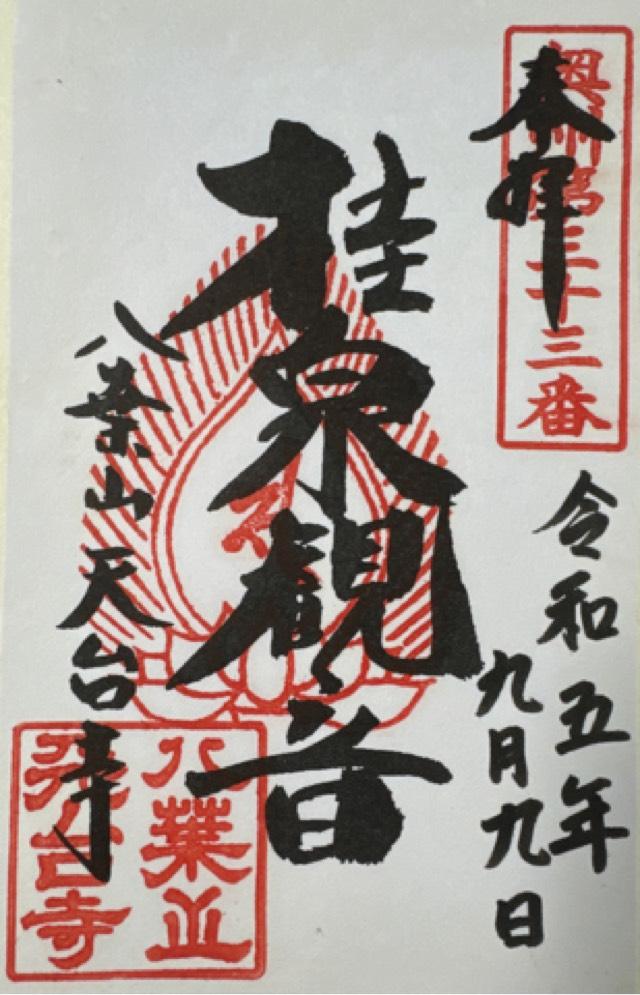 奉拝
奥州第三十三番
令和五年
九月九日
桂泉観音
八葉山天台寺
八葉山
天台寺